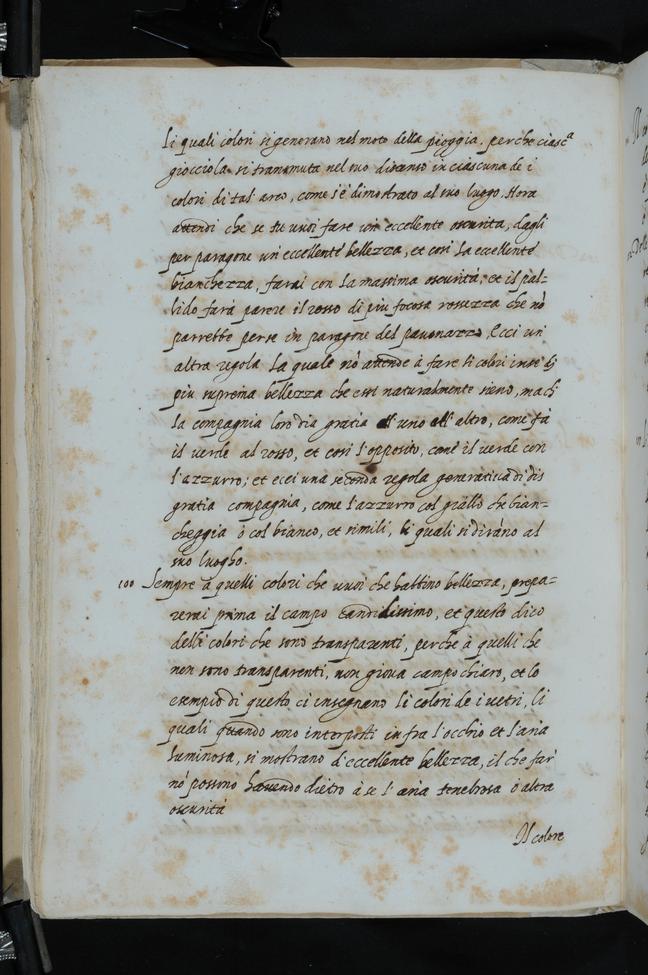 li quali colori si generano nel moto della pioggia, perche ciasc.a
gocciola si transmuta nel suo discenso in ciascuna de i
colori di tal arco, come s'è dimostrato al suo luogo. Hora
attendi che se tu vuoi fare un eccellente oscurita, dagli
per paragone un'eccellente bellezza, et cosi la eccellente
bianchezza, farai con la massima oscurità, et il pal=
lido farà parere il rosso di piu focosa rossezza che nò
parrebbe per se in paragone del pauonazzo. Ecci un
altra regola la quale nò attende à fare li colori in se di
più suprema bellezza che essi naturalmente sieno, mach
la compagnia loro dia gratia all' uno all' altro, come fà
il verde al rosso, et cosi l'opposito, come il verde con
l'azzurro; et ecci una seconda regola generatiua di dis
gratia compagnia, come l'azzurro col giallo ch bian=
cheggia ò col bianco, et simili, li quali si dirano al
suo luogho.
100 Sempre à quelli colori che vuoi che habbino bellezza, prepa=
rerai prima il campo candidissimo, et questo dico
delli colori che sono transparenti, perche à quelli che
non sono transparenti, non gioua campo chiaro, et lo
esempio di questo ci insegnano li colori de i uetri, li
quali quando sono interposti infra l'occhio et l'aria
luminosa, si mostrano d'eccellente bellezza, il che far
nò possono hauendo dietro à se l'aria tenebrosa ò altra
oscurità
Il colore